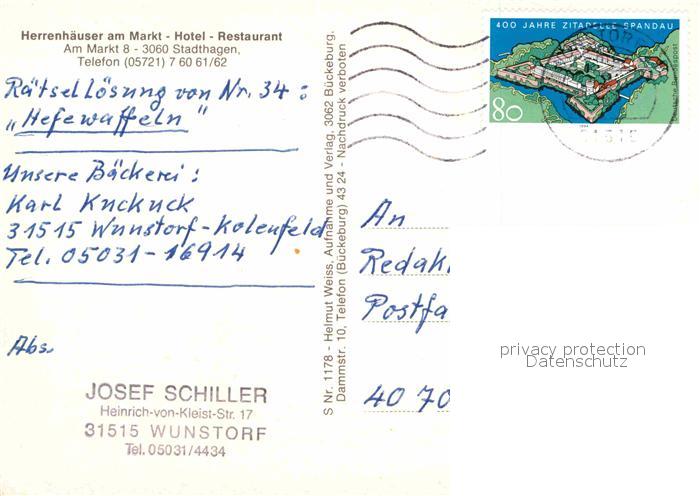 Herrenhäuser am Markt - Hotel - Restaurant
Am Markt 8 - 3060 Stadthagen,
Telefon (05721) 7 60 61/62
Rätsellösung von Nr. 34 :
„Hefewaffeln"
Unsere Bäckerei :
Karl Knckuck
31515 Wunstorf-Kolenfeld
Tel. 05031-16914
Abs.
JOSEF SCHILLER
Heinrich-von-Kleist-Str. 17
31515 WUNSTORF
Tel. 05031/4434
S Nr. 1178 - Helmut Weiss, Aufnahme und Verlag, 3062 Bückeburg.
Dammstr. 10, Telefon (Bückeburg) 43 24 - Nachdruck verboten
400 JAHRE ZITADELLE SPANDAU
Deutsche Bundespost
80
An
Redak
Postfa
40 70
privacy protection
Datenschutz